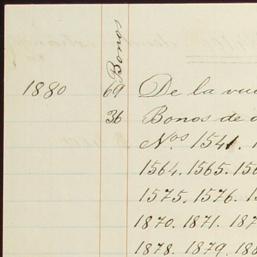 Bonos
1880 69 De la
36 Bonos de
Nos. 1541.
1564. 1565. 156
1575. 1576. 15
1870. 1871. 187
1878. 1879. 188